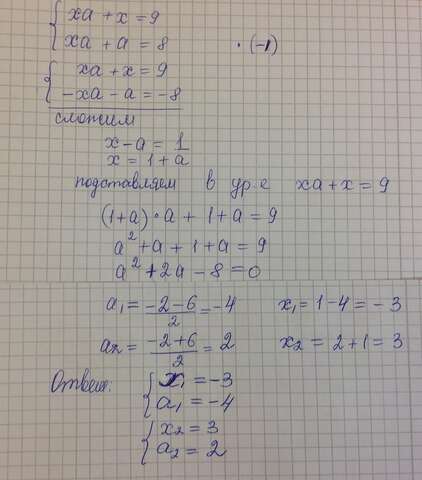 xa + x = 9
xa + a = 8 · (-1)
xa + x = 9
-xa - a = -8
сложим
x - a = 1
x = 1 + a
подставляем в ур-е xa + x = 9
(1+a)·a + 1+a = 9
a² + a + 1 + a = 9
a² + 2a - 8 = 0
a₁ = -2-6/2 = -4 x₁ = 1-4 = -3
a₂ = -2+6/2 = 2 x₂ = 2+1 = 3
Ответ: x₁ = -3
a₁ = -4
x₂ = 3
a₂ = 2